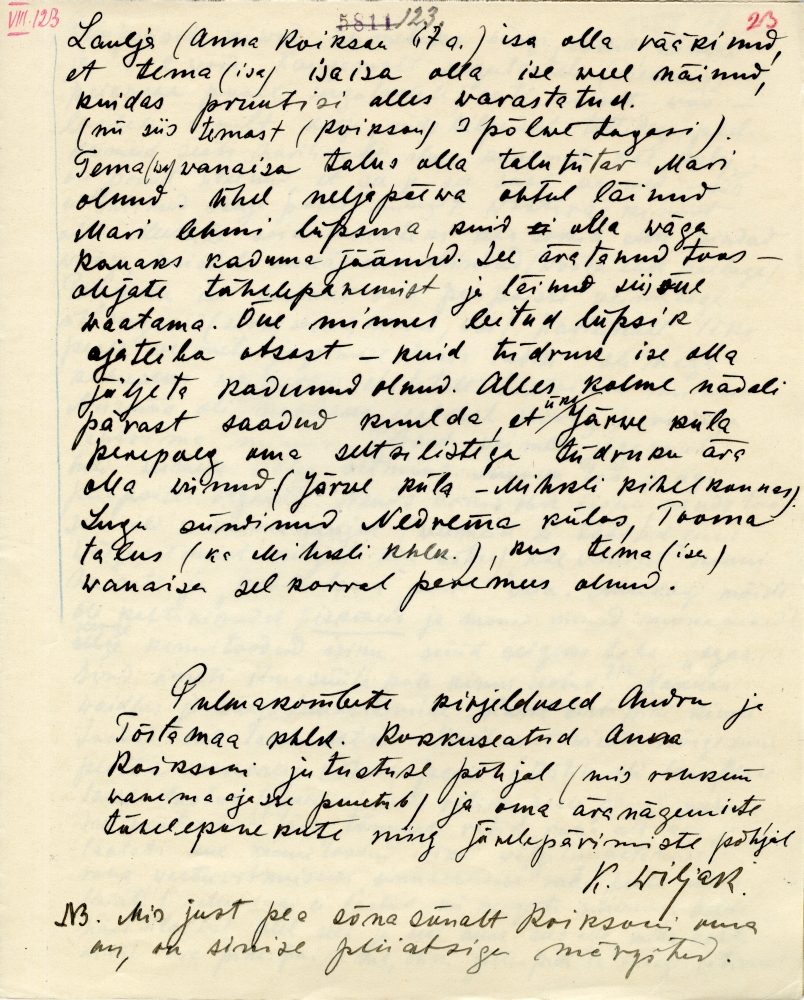 VIII.123 5811/123. 23
Laulja (Anna Koikson 67a.) isa olla rääkinud,
et tema (isa) isaisa olla ise weel näinud,
kuidas pruutisi alles warastatud.
(nii siis temast (Koikson) 3 põlwe tagasi).
Tema wanaisa talus olla talutütar Mari
olnud. Ühel neljapäewa õhtul läinud
Mari lehmi lüpsma kuid olla wäga
kauaks kaduma jäänud. See äratanud toas-
olijate tähelepanemist ja läinud siis õue
waatama. Õue minnes leitud lüpsik
ajateiba otsast - kuid tüdruk ise olla
jäljeta kadunud olnud. Alles kolme nädali
pärast saadud kuulda, et üks Järwe küla
perepoeg oma seltsilistega tüdruku ära
olla wiinud. (Järwe küla - Mihkli kihelkonnas).
Lugu sündinud Nedrema külas, Tooma
talus (ka Mihkli khlk.), kus tema (isa)
wanaisa sel korral peremees olnud.
Pulmakombete kirjeldused Audru ja
Tõstamaa khlk. Kokkuseatud Anna
Koiksoni jutustuse põhjal (mis rohkem
wanema ajasse puutub) ja oma äranägemiste
tähelepanekute ning järelepärimiste põhjal
K. Wiljak.
NB. Mis just pea sõna sõnalt Koiksoni oma
on, on sinise pliiatsiga märgitud.